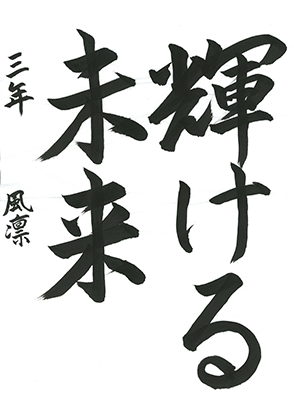 輝ける
未来
三年 風凛